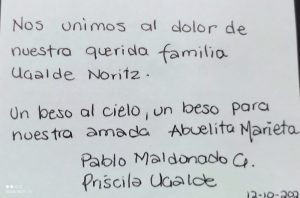 Nos unimos al dolor de
nuestra querida familia
Ugalde Noritz.
Un beso al cielo, un beso para
nuestra amada Abuelita Marieta
Pablo Maldonado G.
Priscila Ugalde